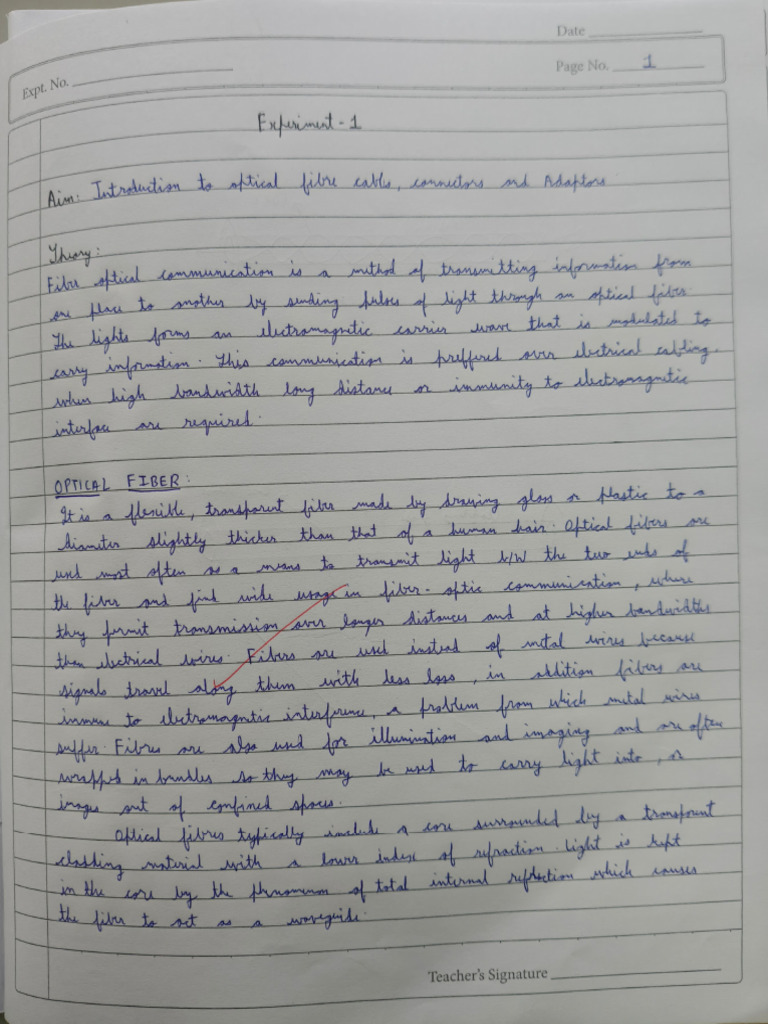 Date
Expt. No.
Page No. 1
Experiment - 1
Aim: Introduction to optical fibre cable, connectors and Adaptors
Theory:
Fiber optical communication is a method of transmitting information from
one place to another by sending pulses of light through an optical fiber
The lights forms an electromagnetic carrier wave that is modulated to
carry information. This communication is preffered over electrical cabling.
when high bandwidth long distance or immunity to electromagnetic
interface are required.
OPTICAL FIBER:
It is a flexible, transparent fiber made by drawing glass or plastic to a
diameter slightly thicker than that of a human hair. Optical fibers are
used most often as a means to transmit light b/w the two ends of
the fiber and find wide usage in fiber-optic communication, where
they permit transmission over longer distances and at higher bandwidths
than electrical wires. Fibers are used instead of metal wires because
signals travel along them with less loss, in addition fibers are
immune to electromagnetic interference, a problem from which metal wires
suffer. Fibres are also used for illumination and imaging and are often
wrapped in bundles so they may be used to carry light into, or
images out of confined spaces.
Optical fibres typically include a core surrounded by a transparent
cladding material with a lower index of refraction. Light is kept
in the core by the phenomenon of total internal reflection which causes
the fiber to act as a waveguide.
Teacher's Signature